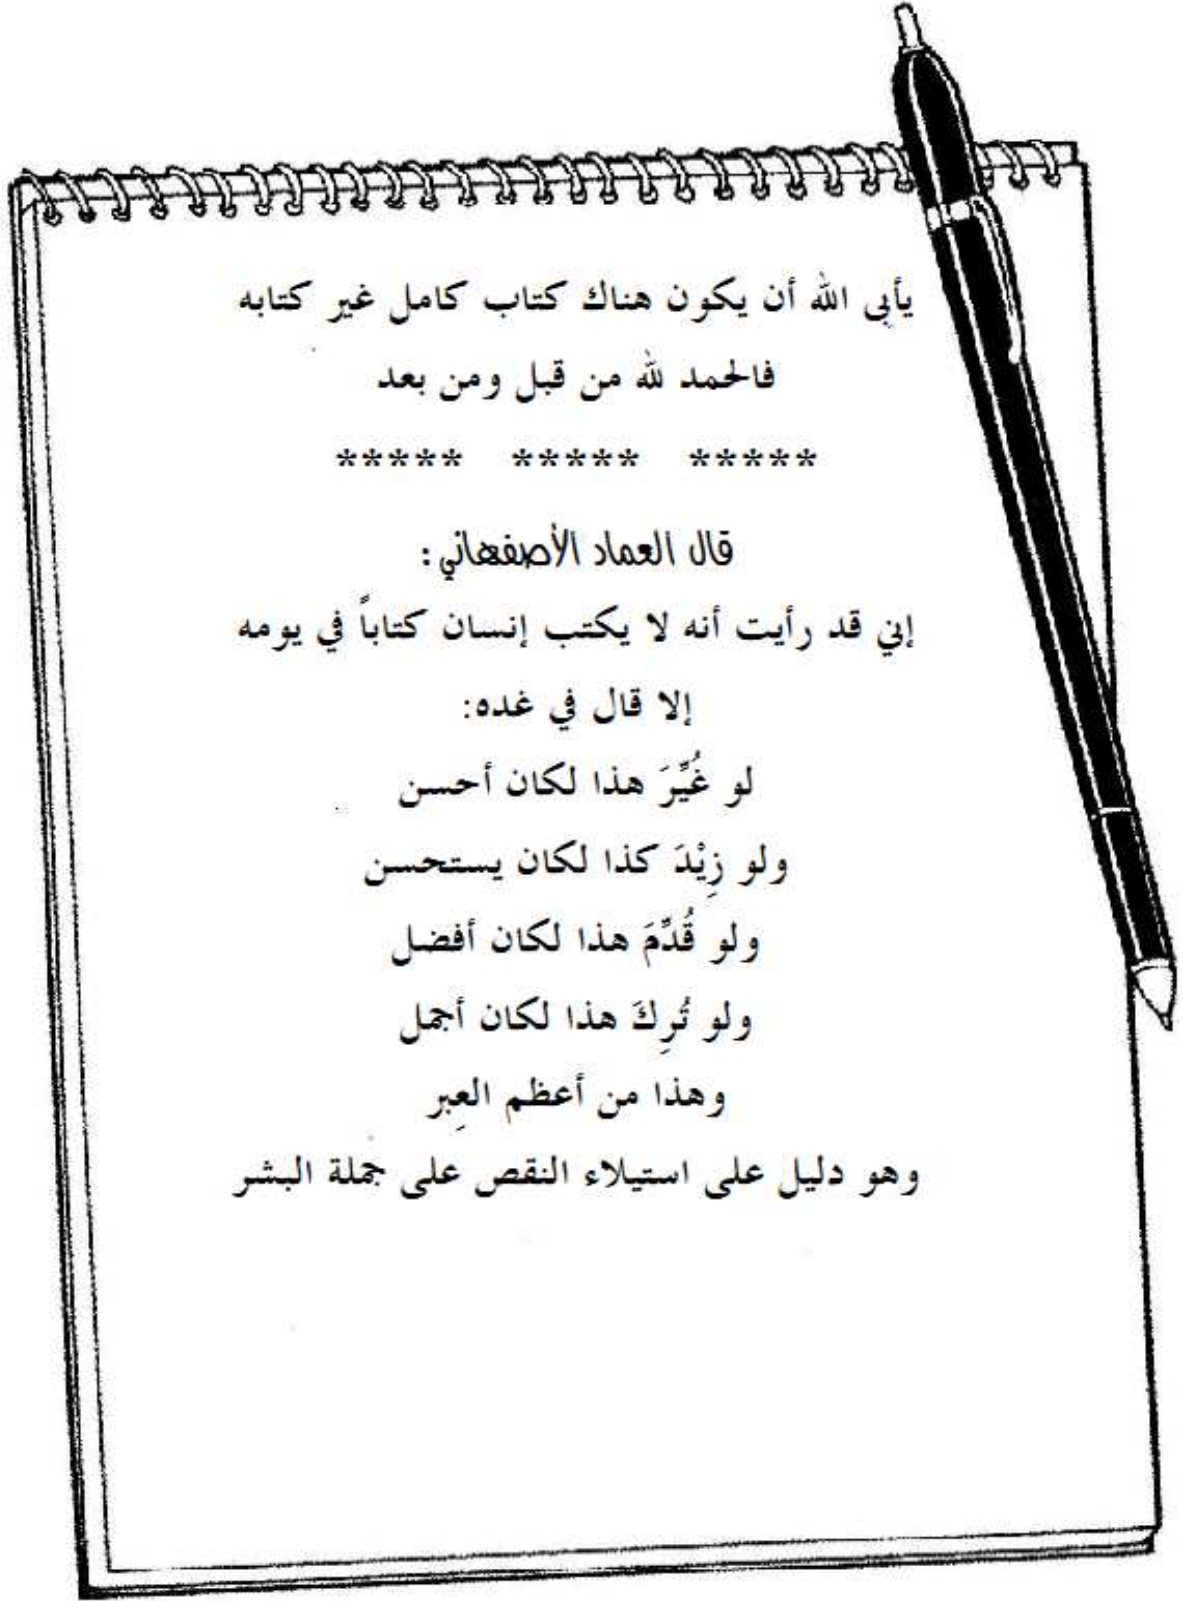 يأبى الله أن يكون هناك كتاب كامل غير كتابه
فالحمد لله من قبل ومن بعد
***** ***** *****
قال العماد الأصفهاني:
إني قد رأيت أنه لا يكتب إنسان كتاباً في يومه
إلا قال في غده:
لو غُيِّرَ هذا لكان أحسن
ولو زِيْدَ كذا لكان يستحسن
ولو قُدِّمَ هذا لكان أفضل
ولو تُرِكَ هذا لكان أجمل
وهذا من أعظم العِبر
وهو دليل على استيلاء النقص على جملة البشر